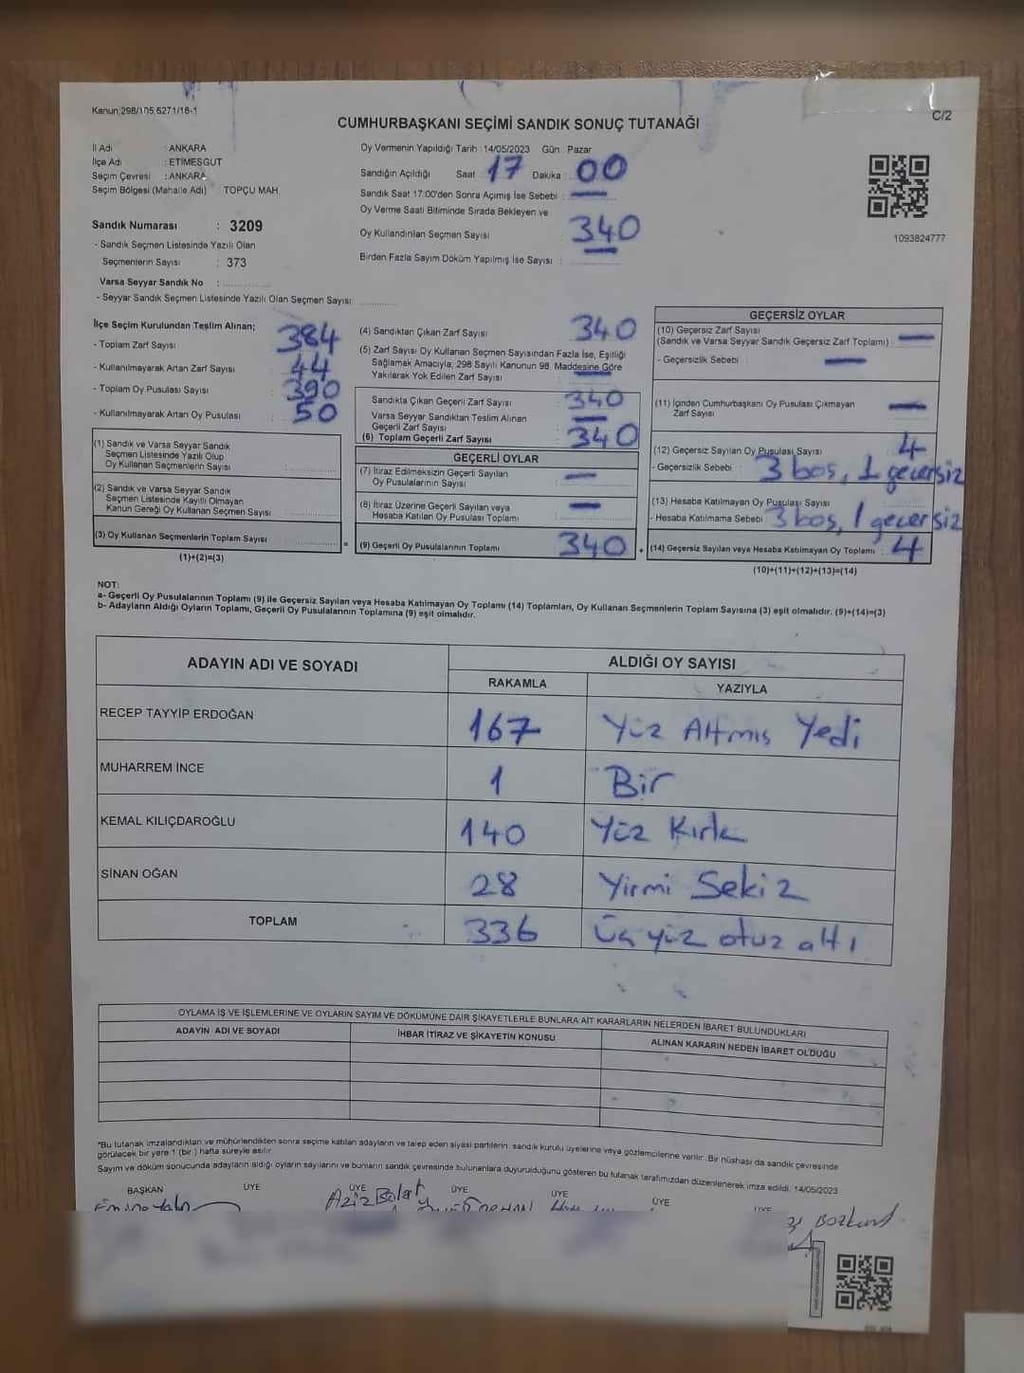 Kanun:298/105,5271/16-1
C/2
CUMHURBAŞKANI SEÇİMİ SANDIK SONUÇ TUTANAĞI
İl Adı : ANKARA
İlçe Adı : ETİMESGUT
Seçim Çevresi : ANKARA
Seçim Bölgesi (Mahalle Adı) TOPÇU MAH.
Sandık Numarası : 3209
- Sandık Seçmen Listesinde Yazılı Olan
Seçmenlerin Sayısı : 373
Varsa Seyyar Sandık No :
- Seyyar Sandık Seçmen Listesinde Yazılı Olan Seçmen Sayısı
Oy Vermenin Yapıldığı Tarih : 14/05/2023 Gün : Pazar
Sandığın Açıldığı Saat : 17 Dakika : 00
Sandık Saat 17:00'den Sonra Açımış İse Sebebi : —
Oy Verme Saati Bitiminde Sırada Bekleyen ve
Oy Kullandırılan Seçmen Sayısı 340
Birden Fazla Sayım Döküm Yapılmış İse Sayısı :
1093824777
İlçe Seçim Kurulundan Teslim Alınan;
- Toplam Zarf Sayısı : 384
- Kullanılmayarak Artan Zarf Sayısı : 44
- Toplam Oy Pusulası Sayısı : 390
- Kullanılmayarak Artan Oy Pusulası : 50
(1) Sandık ve Varsa Seyyar Sandık
Seçmen Listesinde Yazılı Olup
Oy Kullanan Seçmenlerin Sayısı
(2) Sandık ve Varsa Seyyar Sandık
Seçmen Listesinde Kayıtlı Olmayan
Kanun Gereği Oy Kullanan Seçmen Sayısı
(3) Oy Kullanan Seçmenlerin Toplam Sayısı
(1)+(2)=(3)
=
(4) Sandıktan Çıkan Zarf Sayısı 340
(5) Zarf Sayısı Oy Kullanan Seçmen Sayısından Fazla İse, Eşitliği
Sağlamak Amacıyla, 298 Sayılı Kanunun 98. Maddesine Göre
Yakılarak Yok Edilen Zarf Sayısı
Sandıkta Çıkan Geçerli Zarf Sayısı 340
Varsa Seyyar Sandıktan Teslim Alınan
Geçerli Zarf Sayısı —
(6) Toplam Geçerli Zarf Sayısı 340
GEÇERLİ OYLAR
(7) İtiraz Edilmeksizin Geçerli Sayılan
Oy Pusulalarının Sayısı —
(8) İtiraz Üzerine Geçerli Sayılan veya
Hesaba Katılan Oy Pusulası Toplamı —
(9) Geçerli Oy Pusulalarının Toplamı 340
+
GEÇERSİZ OYLAR
(10) Geçersiz Zarf Sayısı
(Sandık ve Varsa Seyyar Sandık Geçersiz Zarf Toplamı) —
- Geçersizlik Sebebi : —
(11) İçinden Cumhurbaşkanı Oy Pusulası Çıkmayan
Zarf Sayısı —
(12) Geçersiz Sayılan Oy Pusulası Sayısı 4
- Geçersizlik Sebebi : 3 boş, 1 geçersiz
(13) Hesaba Katılmayan Oy Pusulası Sayısı
- Hesaba Katılmama Sebebi 3 boş, 1 geçersiz
(14) Geçersiz Sayılan veya Hesaba Katılmayan Oy Toplamı 4
(10)+(11)+(12)+(13)=(14)
NOT:
a- Geçerli Oy Pusulalarının Toplamı (9) ile Geçersiz Sayılan veya Hesaba Katılmayan Oy Toplamı (14) Toplamları, Oy Kullanan Seçmenlerin Toplam Sayısına (3) eşit olmalıdır. (9)+(14)=(3)
b- Adayların Aldığı Oyların Toplamı, Geçerli Oy Pusulalarının Toplamına (9) eşit olmalıdır.
ADAYIN ADI VE SOYADI ALDIĞI OY SAYISI
RAKAMLA YAZIYLA
RECEP TAYYİP ERDOĞAN 167 Yüz Altmış Yedi
MUHARREM İNCE 1 Bir
KEMAL KILIÇDAROĞLU 140 Yüz Kırk
SİNAN OĞAN 28 Yirmi Sekiz
TOPLAM 336 Üç yüz otuz altı
OYLAMA İŞ VE İŞLEMLERİNE VE OYLARIN SAYIM VE DÖKÜMÜNE DAİR ŞİKAYETLERLE BUNLARA AİT KARARLARIN NELERDEN İBARET BULUNDUKLARI
ADAYIN ADI VE SOYADI İHBAR İTİRAZ VE ŞİKAYETİN KONUSU ALINAN KARARIN NEDEN İBARET OLDUĞU
*Bu tutanak imzalandıktan ve mühürlendikten sonra seçime katılan adayların ve talep eden siyasi partilerin, sandık kurulu üyelerine veya gözlemcilerine verilir. Bir nüshası da sandık çevresinde
görülecek bir yere 1 (bir ) hafta süreyle asılır.
Sayım ve döküm sonucunda adayların aldığı oyların sayılarını ve bunların sandık çevresinde bulunanlara duyurulduğunu gösteren bu tutanak tarafımızdan düzenlenerek imza edildi. 14/05/2023
BAŞKAN ÜYE ÜYE ÜYE ÜYE ÜYE ÜYE
Aziz Bolat Bozkurt